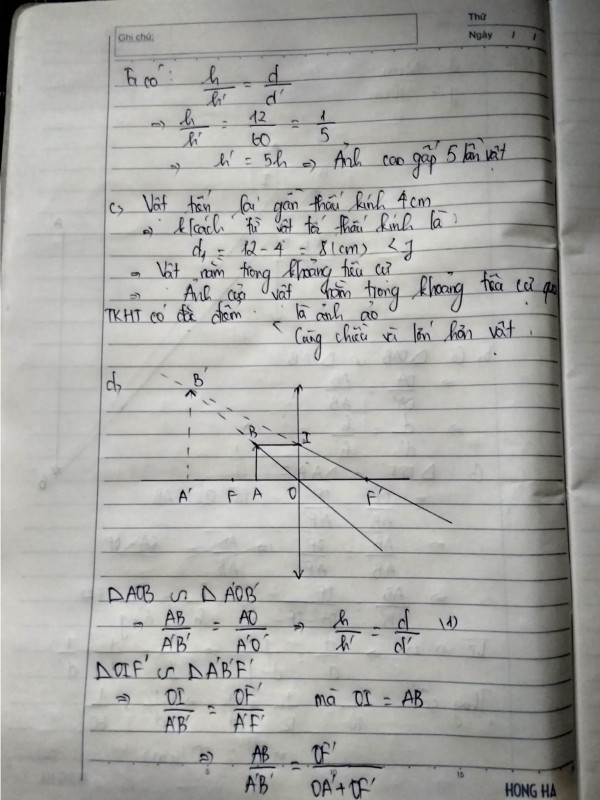 Thứ
Ghi chú:
Ngày / /
Ta có: h/h' = d/d'
⇒ h/h' = 12/60 = 1/5
⇒ h' = 5h ⇒ Ảnh cao gấp 5 lần vật
c, Vật tiến lại gần thấu kính 4cm
⇒ k/cách từ vật tới thấu kính là:
d₁ = 12 - 4 = 8 (cm) < f
⇒ Vật nằm trong khoảng tiêu cự
⇒ Ảnh của vật nằm trong khoảng tiêu cự qua
TKHT có đặc điểm: là ảnh ảo
cùng chiều và lớn hơn vật.
d,
B'
B I
A' F A O F'
ΔAOB ∽ ΔA'OB'
⇒ AB/A'B' = AO/A'O ⇒ h/h' = d/d' (1)
ΔOIF' ∽ ΔA'B'F'
⇒ OI/A'B' = OF'/A'F' mà OI = AB
⇒ AB/A'B' = OF'/OA'+OF'
5 10 15
HONG HA